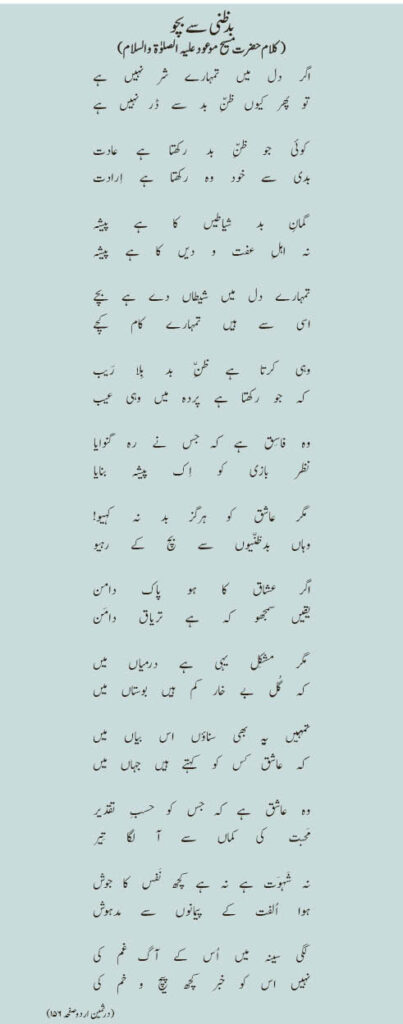 بدظنی سے بچو
(کلام حضرت مسیح موعود علیہ الصلوٰۃ والسلام)
اگر دل میں تمہارے شر نہیں ہے
تو پھر کیوں ظنِّ بد سے ڈر نہیں ہے
کوئی جو ظنِّ بد رکھتا ہے عادت
بدی سے خود وہ رکھتا ہے اِرادت
گمانِ بد شیاطیں کا ہے پیشہ
نہ اہلِ عفت و دیں کا ہے پیشہ
تمہارے دل میں شیطاں دے ہے بچے
اسی سے ہیں تمہارے کام کچے
وہی کرتا ہے ظنِّ بد بِلا رَیب
کہ جو رکھتا ہے پردہ میں وہی عیب
وہ فاسِق ہے کہ جس نے رہ گنوایا
نظر بازی کو اِک پیشہ بنایا
مگر عاشق کو ہرگز بد نہ کہیو!
وہاں بدظنّیوں سے بچ کے رہیو
اگر عشاق کا ہو پاک دامن
یقیں سمجھو کہ ہے تریاق دامَن
مگر مشکل یہی ہے درمیاں میں
کہ گُل بے خار کم ہیں بوستاں میں
تمہیں یہ بھی سناؤں اس بیاں میں
کہ عاشق کس کو کہتے ہیں جہاں میں
وہ عاشق ہے کہ جس کو حسبِ تقدیر
مَحبت کی کماں سے آ لگا تِیر
نہ شَہوَت ہے نہ ہے کچھ نَفس کا جوش
ہوا اُلفت کے پیمانوں سے مدہوش
لگی سینہ میں اُس کے آگ غم کی
نہیں اس کو خبر کچھ پیچ و خم کی
(درثمین اردو صفحہ ۱۵۶)